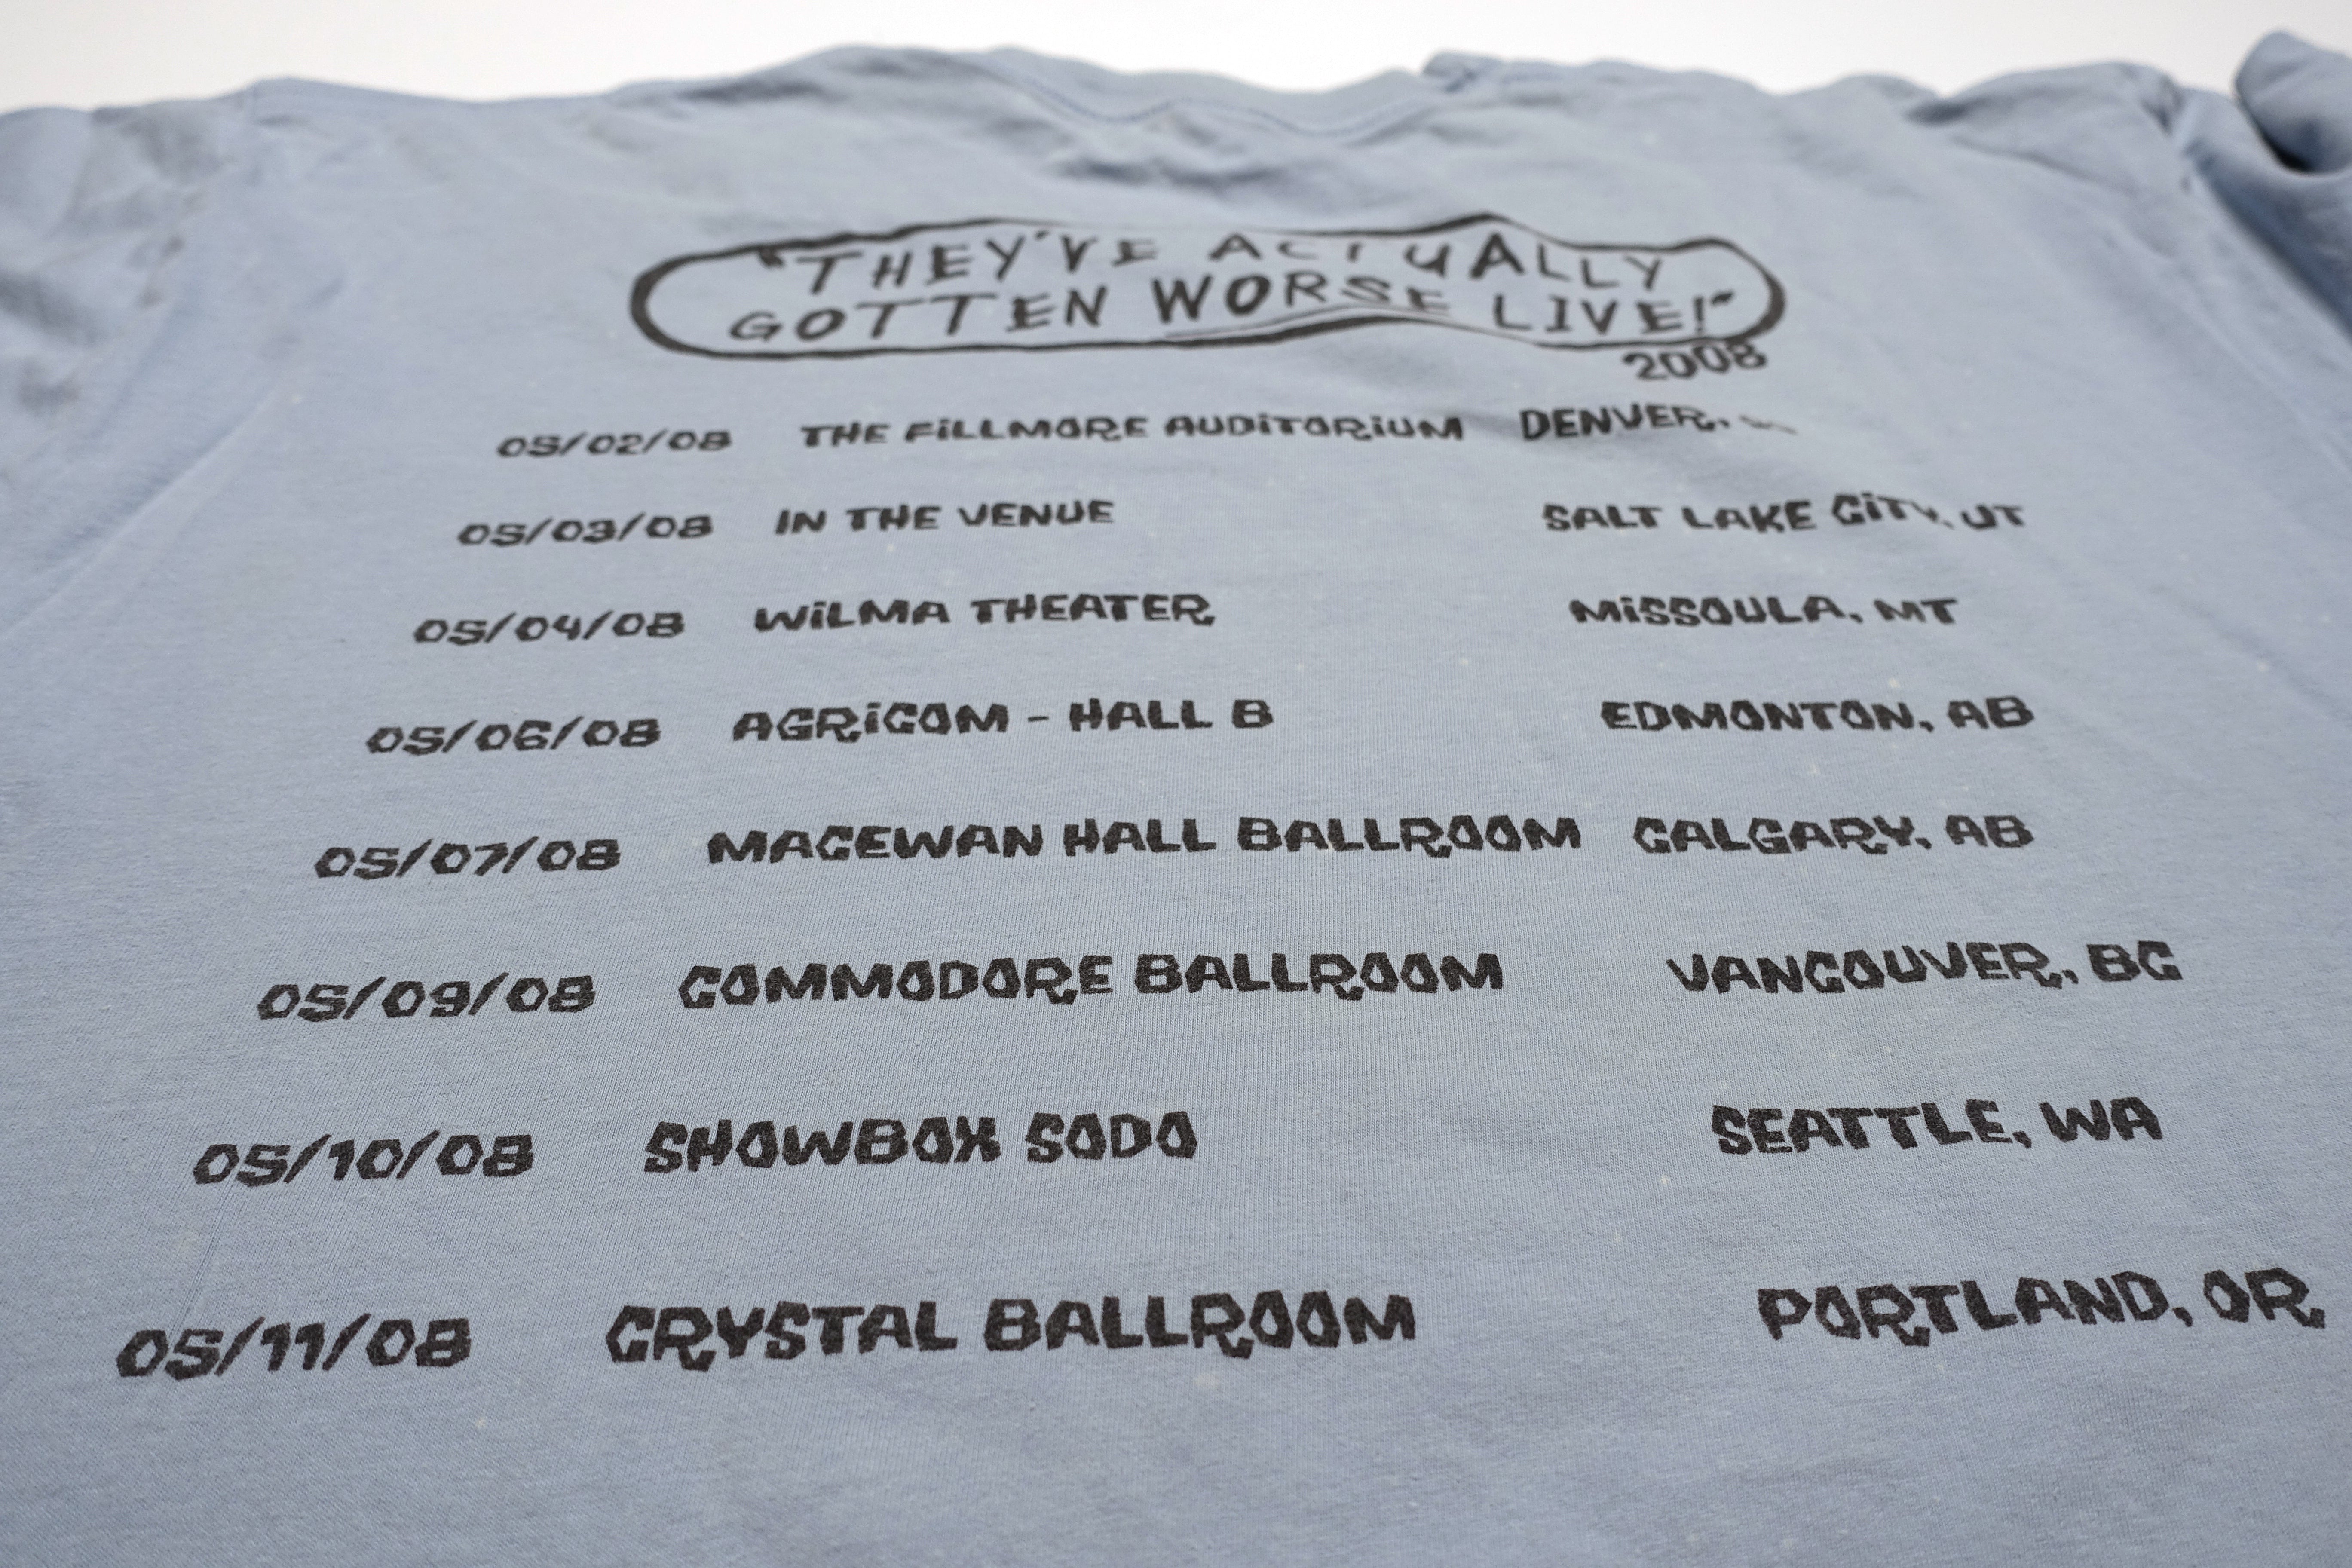 "THEY'VE ACTUALLY
GOTTEN WORSE LIVE!"
2008
05/02/08 THE FILLMORE AUDITORIUM DENVER,
05/03/08 IN THE VENUE SALT LAKE CITY, UT
05/04/08 WILMA THEATER MISSOULA, MT
05/06/08 AGRICOM - HALL B EDMONTON, AB
05/07/08 MACEWAN HALL BALLROOM CALGARY, AB
05/09/08 COMMODORE BALLROOM VANCOUVER, BC
05/10/08 SHOWBOX SODO SEATTLE, WA
05/11/08 CRYSTAL BALLROOM PORTLAND, OR